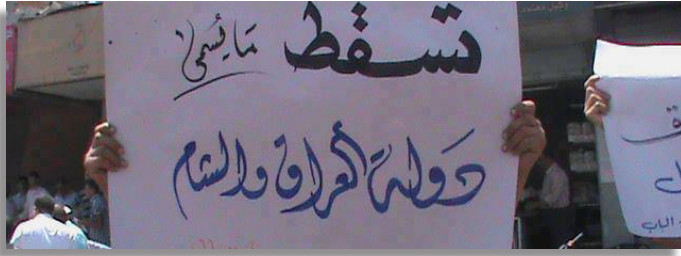 تسقط ما يُسمى
دولة العراق والشام
الباب